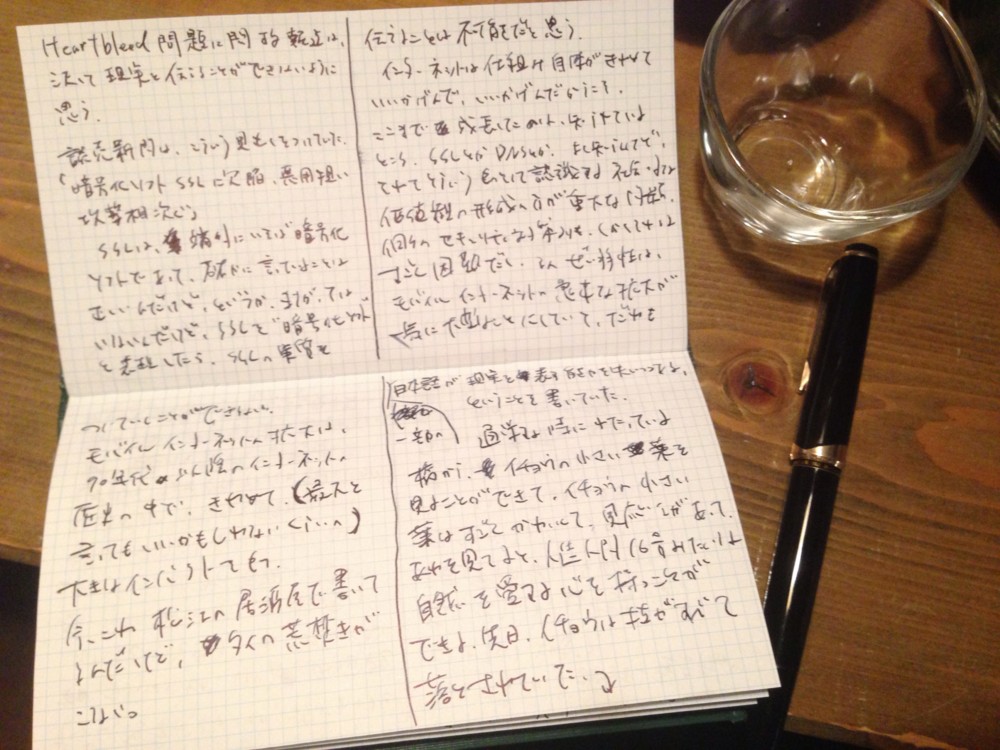 Heartbleed 問題に関する報道は、
決して現実を伝えることができないように
思う。
読売新聞は、こういう見出しをつけていた。
「暗号化ソフト SSLに欠陥、悪用狙い
攻撃相次ぐ」
SSLは、いわば暗号化
ソフトであって、確かに言っていることは
正しいんだけど、というか、まちがっては
いないんだけど、SSLを"暗号化ソフト"
と表現したら、SSLの重要を
伝えることは不可能だと思う。
インターネットは仕組み自体がきわめて
いいかげんで、いいかげんだからこそ、
ここまで成長したのは、知っている
ところ。SSLとかDNSとか、
認識する
価値観の形成の方が重大な問題。
個々のセキュリティ対策も、しかしそれは
すごく困難だし、ぜい弱性は、
モバイルインターネットの急速な拡大が
一気に大変なことにしていて、だれも
ついていくことができない。
モバイルインターネットの拡大は、
90年代以降のインターネットの
歴史の中で、きわめて、(最大と
言ってもいいかもしれないくらいの)
大きなインパクトでもつ。
今、これ松江の居酒屋で書いて
るんだけど、タイの荒焚きが
日本語が現実を表す能力を失いつつある、
ということを書いていた。
一定の
通学する時にわたっている
橋から、イチョウの小さい葉を
見ることができて、イチョウの小さい
葉はすごくかわいくて、見応えがあって、
あれを見てると、人造人間16号みたいな
自然を愛する心を持つことが
できる。先日、イチョウは枝がすべて
落とされていた。